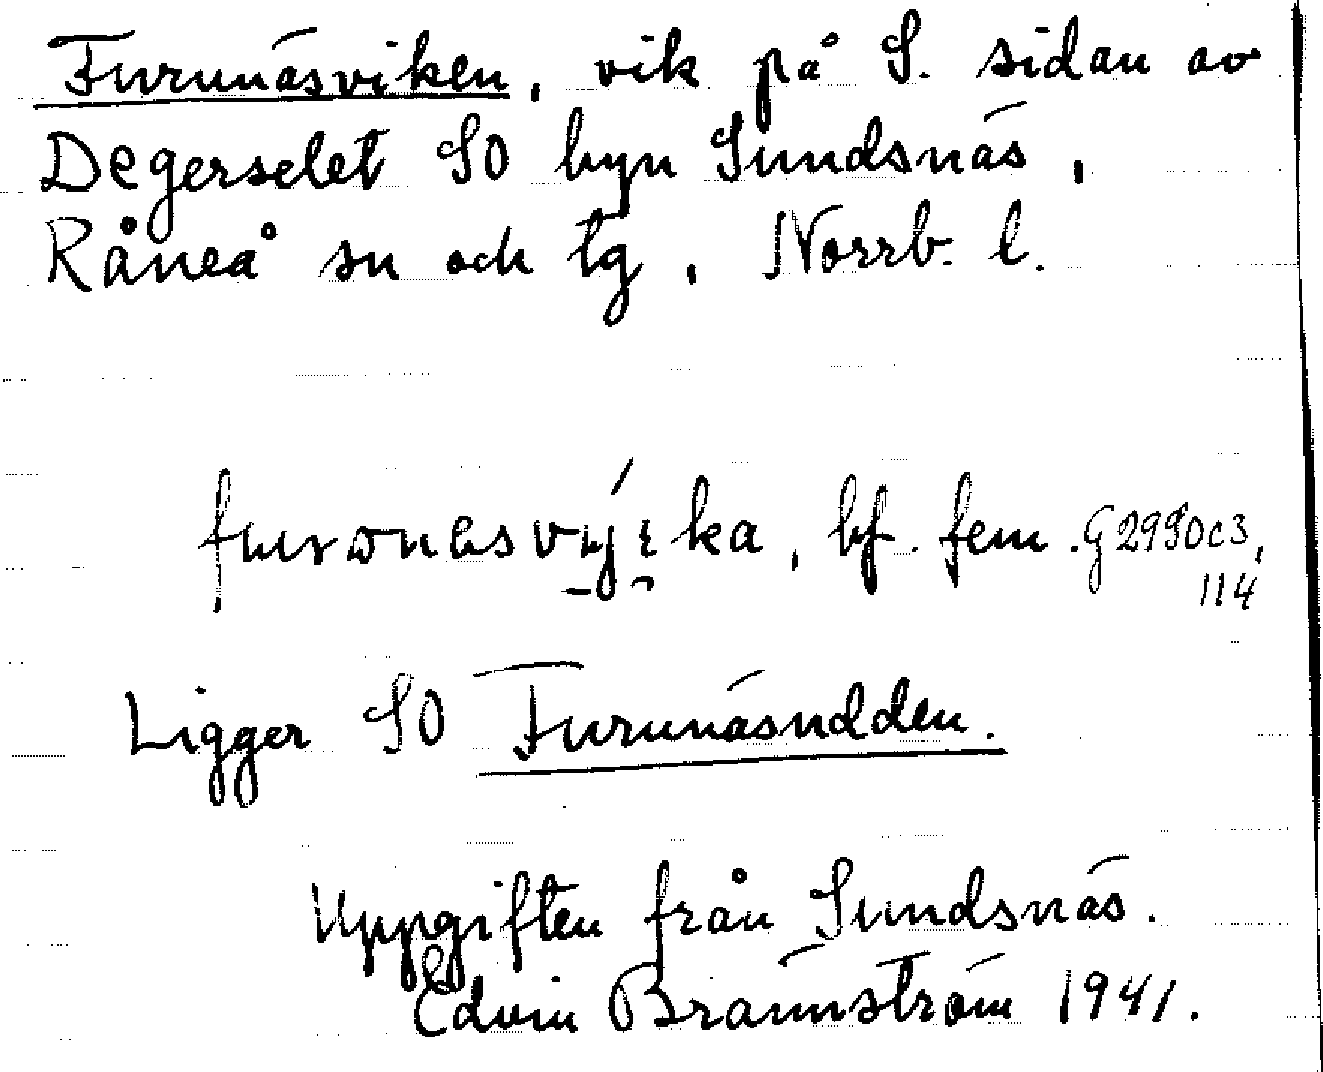 Furunäsviken, vik på S. sidan av
Degerselet SO byn Sundsnäs,
Råneå sn och tg, Norrb. l.
bf. fem. G2990c3,
114
Ligger SO Furunäsudden.
Uppgiften från Sundsnäs.
Edvin Brännström 1941.